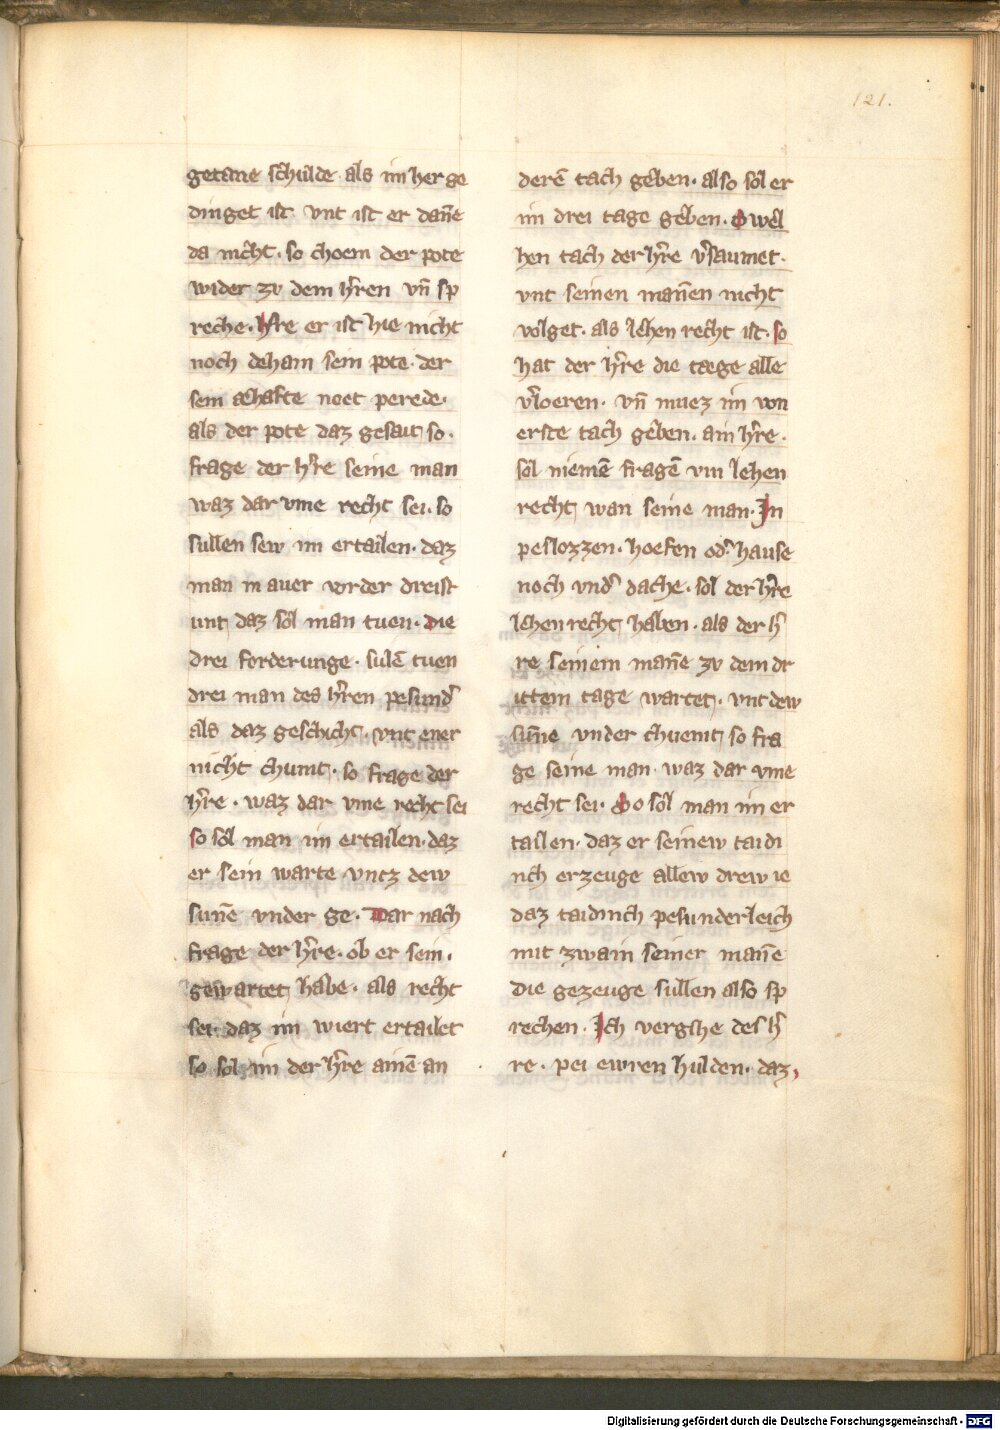 121.
getane schulde. als im her ge
dinget ist. vnt ist er dañe
da nicht. so choem der pote
wider zv dem h̃ren vñ sp
reche. h̃re er ist hie nicht
noch dehain sein pote. der
sein æhafte noet perede.
als der pote daz gesait so.
frage der h̃re seine man
waz dar vme recht sei. so
sullen sew im ertailen. daz
man in auer vorder dreist
unt daz sol man tuen. Die
drei forderunge. sulẽ tuen
drei man des h̃ren pesund̾
als daz geschicht. vnt ener
nicht chumt. so frage der
h̃re. waz dar vme recht sei
so sol man im ertailen. daz
er sein warte vntz dew
suñe vnder ge. Dar nach
frage der h̃re. ob er sein.
gewartet habe. als recht
sei. daz im wiert ertailet
so sol im der h̃re ainẽ an
derẽ tach geben. also sol er
im drei tage geben. Swel
hen tach der h̃re v̾saumet.
vnt seinen mañen nicht
volget. als lehen recht ist. so
hat der h̃re die tæge alle
v̾loeren. vñ muez im von
erste tach geben. ain h̃re.
sol niemẽ fragẽ vm lehen
recht wan seine man. In
peslozzen. hoefen od̾ hause
noch vnd̾ dache. sol der h̃re
lehenrecht haben. als der h̃
re seinem mañe zv dem dr
ittem tage wartet. vnt dew
suñe vnder chuemt so fra
ge seine man. waz dar vme
recht sei. So sol man im er
tailen. daz er seinew taidi
nch erzeuge allew drew ie
daz taidinch pesunderleich
mit zwain seiner mañe
die gezeuge sullen also sp
rechen. Ich vergihe des h̃
re. pei ewren hulden. daz
Digitalisierung gefördert durch die Deutsche Forschungsgemeinschaft - DFG